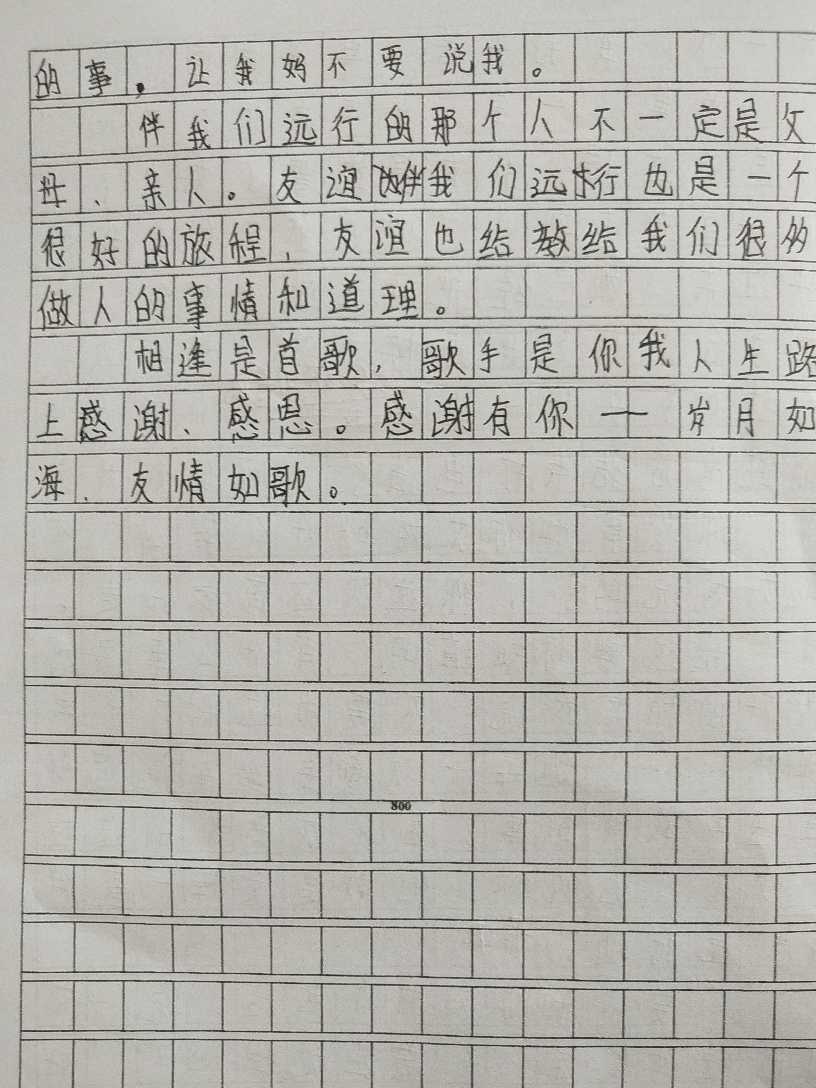 的事。让我妈不要说我。
伴我们远行的那个人不一定是父
母、亲人。友谊伴我们远行也是一个
很好的旅程，友谊也给教给我们很多
做人的事情和道理。
相逢是首歌，歌手是你我人生路
上感谢、感恩。感谢有你一岁月如
海、友情如歌。
800